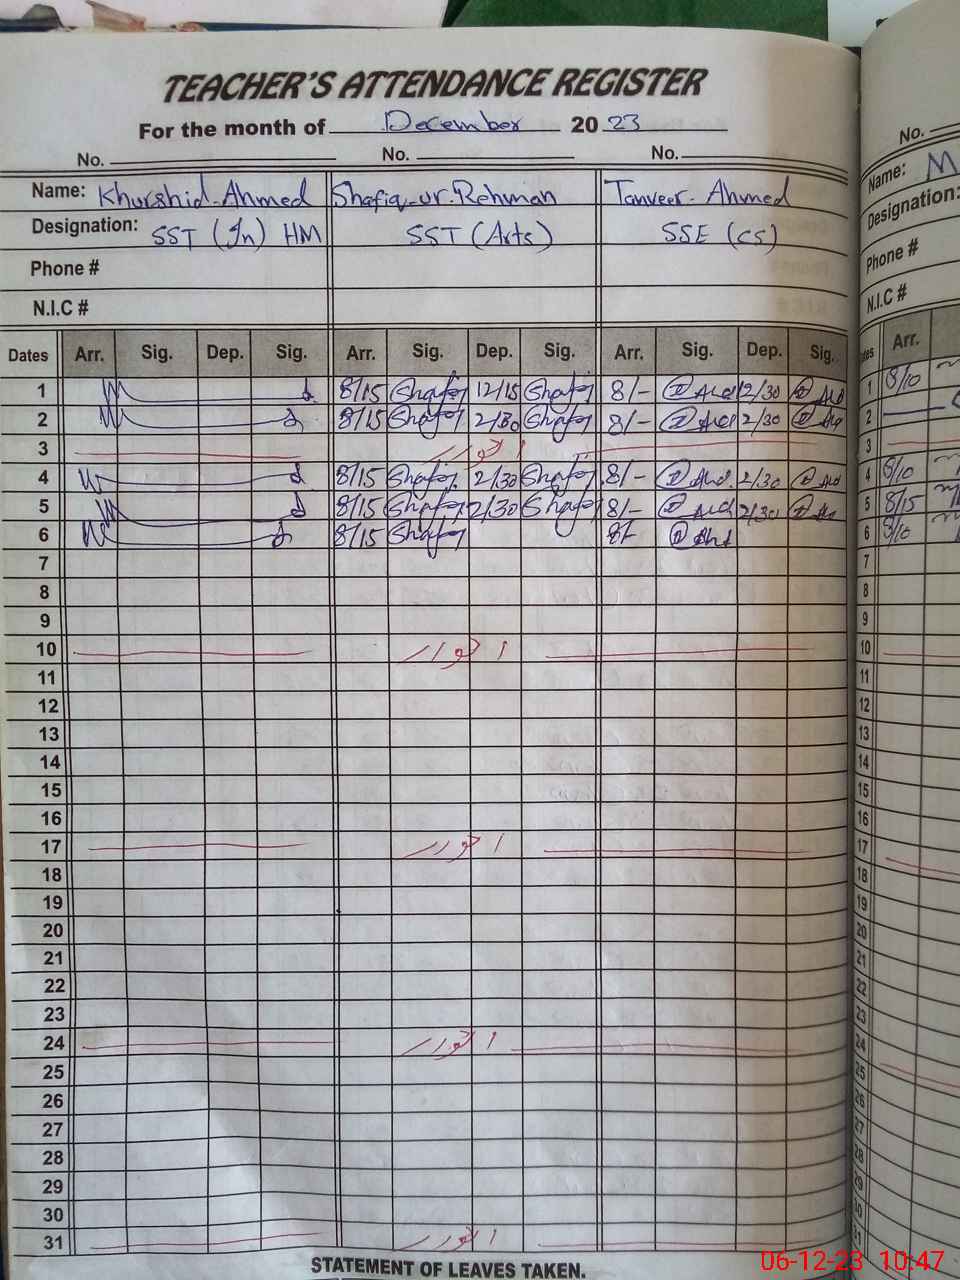 TEACHER'S ATTENDANCE REGISTER
For the month of December 20 23
No. No. No. No.
Name: Khurshid Ahmed Shafiq-ur-Rehman Tanveer Ahmed Name: M
Designation: SST (In) HM SST (Arts) SSE (CS) Designation:
Phone # Phone #
N.I.C # N.I.C #
Dates Arr. Sig. Dep. Sig. Arr. Sig. Dep. Sig. Arr. Sig. Dep. Sig. Arr.
1 8/15 12/15 8/- 12/30 1 8/10
2 8/15 2/30 8/- 2/30 2
3 اتوار 3
4 8/15 2/30 8/- 2/30 4 8/10
5 8/15 2/30 8/- 2/30 5 8/15
6 8/15 8/- 6 8/10
7 7
8 8
9 9
10 اتوار 10
11 11
12 12
13 13
14 14
15 15
16 16
17 اتوار 17
18 18
19 19
20 20
21 21
22 22
23 23
24 اتوار 24
25 25
26 26
27 27
28 28
29 29
30 30
31 اتوار 31
STATEMENT OF LEAVES TAKEN.
06-12-23 10:47